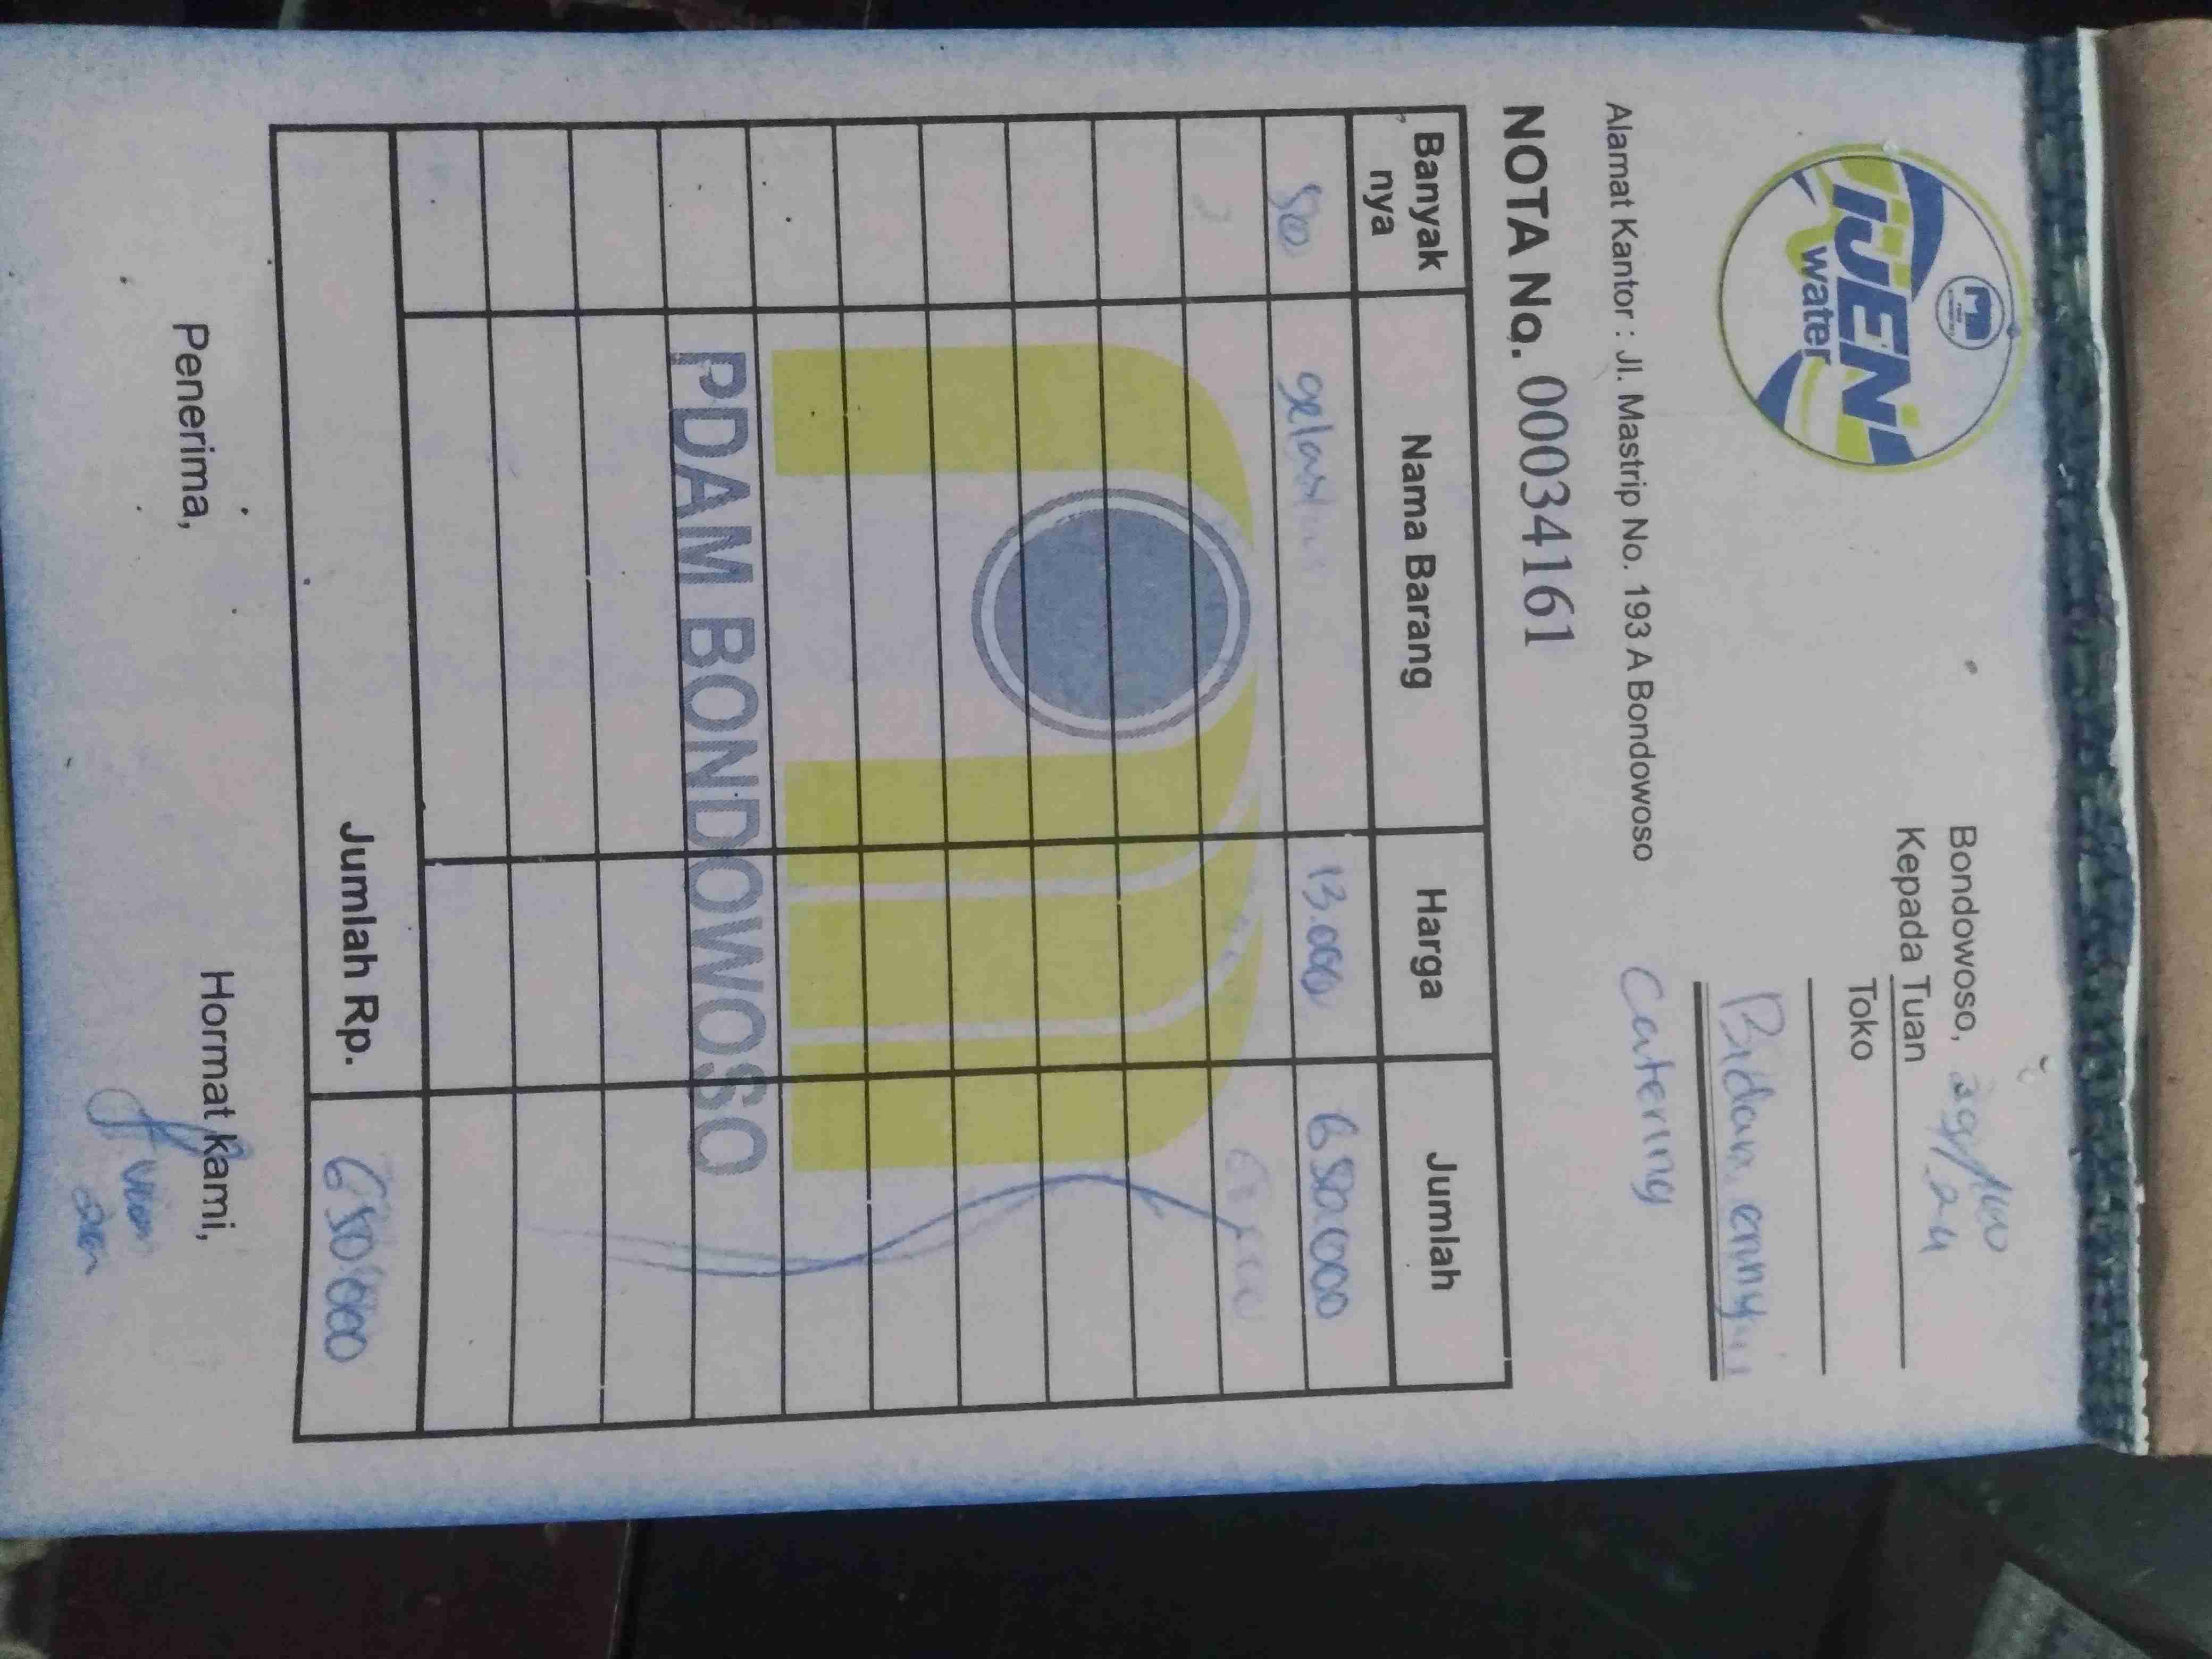 IJEN
water
Bondowoso, 29/
24
Kepada Tuan
Toko
Bidan enny
Catering
Alamat Kantor : Jl. Mastrip No. 193 A Bondowoso
NOTA No. 00034161
Banyak nya Nama Barang Harga Jumlah
50 13.000 650.000
PDAM BONDOWOSO
Jumlah Rp. 650.000
Penerima, Hormat kami,